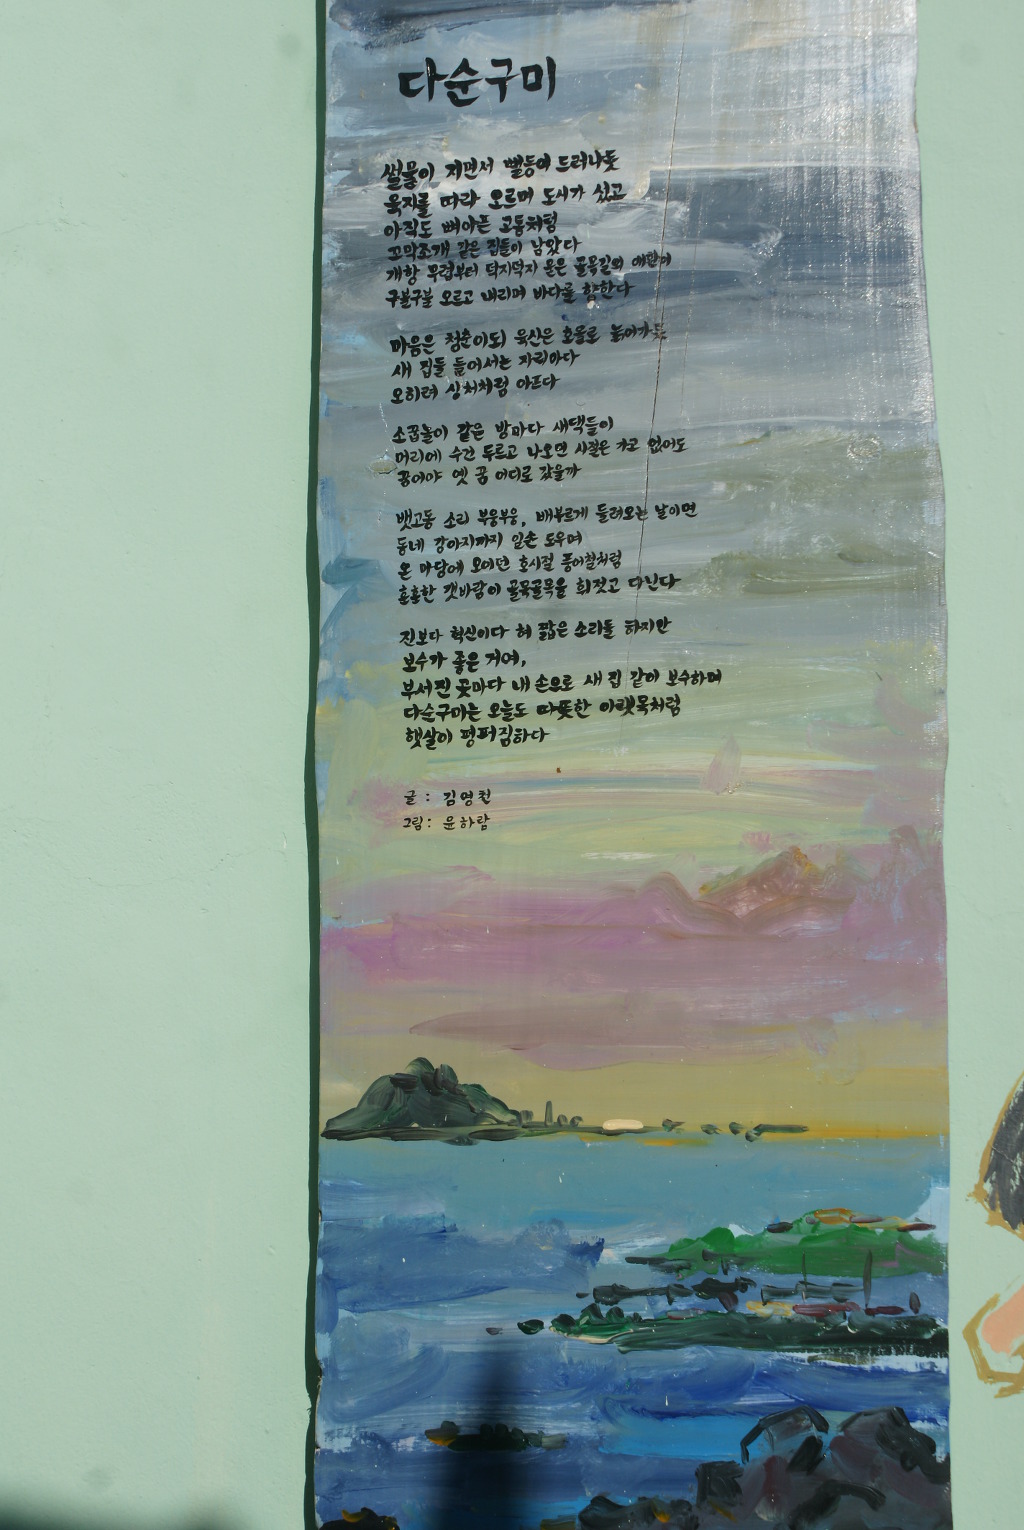 다순구미
썰물이 지면서 뻘등이 드러나듯
육지를 따라 오르며 도시가 섰고
아직도 뻐아픈 고동처럼
꼬막조개 같은 집들이 남았다
개항 무렵부터 덕지덕지 온은 골목길의
구불구불 오르고 내리며 바다를 향한다
마음은 청춘이되 육신은 호올로 늙어가듯
새 집들 들어서는 자리마다
오히려 상처처럼 아프다
소꿉놀이 같은 방마다 새댁들이
머리에 수건 두르고 나오면 시절은 가고 없어도
꿈이야 옛 꿈 어디로 갔을까
뱃고동 소리 부웅부웅, 배부르게 들려오는 날이면
동네 강아지까지 일손 도우며
온 마당에 모이던 호시절 풍어철처럼
훈훈한 갯바람이 골목골목을 휘젓고 다닌다
진보다 혁신이다 혀 짧은 소리들 하지만
보수가 좋은 거여,
부서진 곳마다 내 손으로 새 집 같이 보수하며
다순구미는 오늘도 따뜻한 아랫목처럼
햇살이 펑퍼짐하다
글 : 김영천
그림 : 윤하람